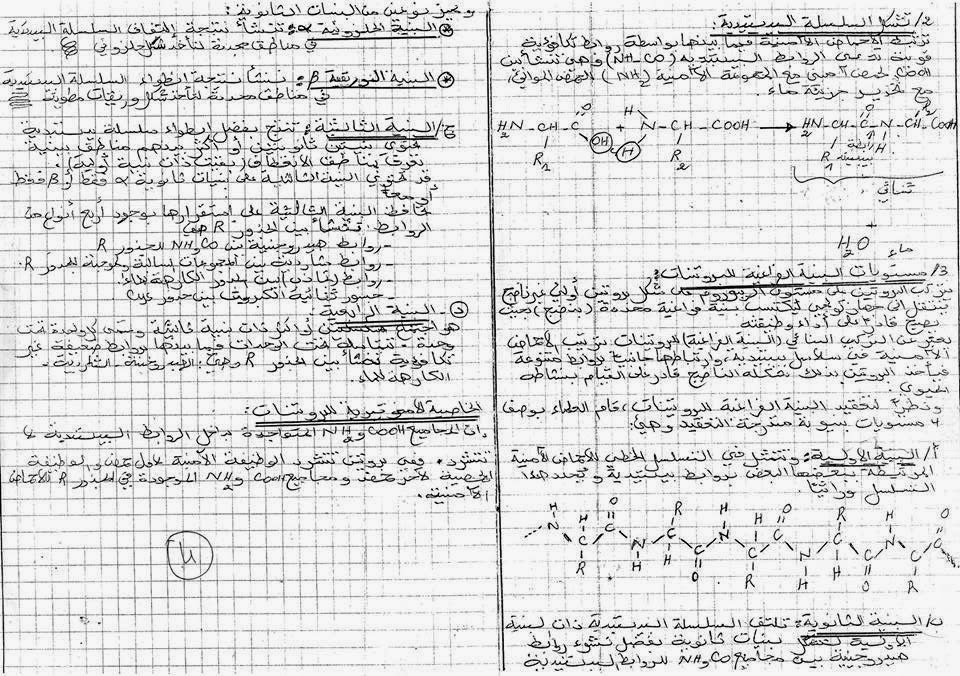 2/ تشكل السلسلة الببتيدية:
ترتبط الأحماض الأمينية فيما بينها بواسطة روابط تكافؤية
قوية تدعى الروابط الببتيدية (NH-CO) وهي تنشأ بين
COOH لحمض أميني مع المجموعة الأمينية (NH2) للحمض الموالي
مع تحرير جزيئة ماء.
H2N-CH-C OH + H N-CH-COOH → H2N-CH-C-N-CH-COOH
O H O R2
R1 H R2 R1 رابطة ببتيدية H
ثنائي
H2O ماء
3/ مستويات البنية الفراغية للبروتينات:
يتركب البروتين على مستوى الريبوزوم على شكل بروتين أولي غير ناضج
ينتقل إلى جهاز كولجي ليكتسب بنية فراغية محددة (ينضج) حيث
يصبح قادر على أداء وظيفته
التركيب البنائي (البنية الفراغية) للبروتينات ترتيب الأحماض
الأمينية في سلاسل ببتيدية وارتباطها جانبيا بروابط متنوعة
فيأخذ البروتين بذلك الناضج قادر على القيام بنشاطه
الحيوي.
ونظرا لتعقيد البنية الفراغية للبروتينات، قام العلماء بوصف
4 مستويات بنيوية متدرجة التعقيد وهي:
أ/ البنية الأولية: وتتمثل في التسلسل الخطي للأحماض الأمينية
المرتبطة ببعضها البعض بروابط ببتيدية ويحدد هذا
التسلسل وراثيا.
H H O R H H O R H O
N C C N C C N C C N C C N C C
R H H O R H H O R
ب/ البنية الثانوية: تلتف السلسلة الببتيدية ذات البنية
الأولية بنيات ثانوية بفضل نشوء روابط
هيدروجينية بين مجاميع CO و NH للروابط الببتيدية
ونميز نوعين من البنيات الثانوية:
* البنية الحلزونية α: تنشأ نتيجة التفاف السلسلة الببتيدية
في مناطق محددة لتأخذ شكل حلزوني
* البنية الوريقية β: تنشأ نتيجة انطواء السلسلة الببتيدية
في مناطق محددة لتأخذ شكل وريقات مطوية
ج/ البنية الثالثية: تنتج بفضل انطواء سلسلة ببتيدية
تحتوي بنيتين ثانويتين أو أكثر بينهم مناطق بينية
تعرف بمناطق الانعطاف (بنية أولية).
قد تحتوي البنية الثالثية على بنيات ثانوية α فقط أو β فقط
أو معا
تحافظ البنية الثالثية على استقرارها بوجود أربع أنواع من
الروابط تنشأ بين الجذور R هي
- روابط هيدروجينية بين CO و NH للجذور R
- روابط شاردية بين المجموعات السالبة والموجبة للجذور R.
- روابط بين الجذور الكارهة للماء.
- جسور ثنائية الكبريت بين جذور
د- البنية الرابعية.
أو أكثر ذات بنية ثالثية وتسمى كل وحدة تحت
وحدة ترتبط تحت الوحدات فيما بينها بروابط ضعيفة غير
تكافؤية تنشأ بين الجذور R وهي: الهيدروجينية - الشاردية -
الكارهة للماء.
الخاصية الأمفوتيرية للبروتينات:
إن المجاميع COOH و NH2 المتواجدة داخل الروابط الببتيدية لا
تتشرد. ففي بروتين تتشرد الوظيفة الأمينية لأول حمض والوظيفة
الحمضية لآخر حمض ومجاميع COOH و NH2 الموجودة في الجذور R للأحماض
الأمينية.